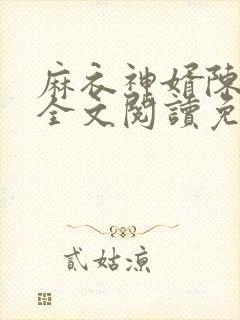 麻衣神婿陳
全文閱讀免
貳姑涼